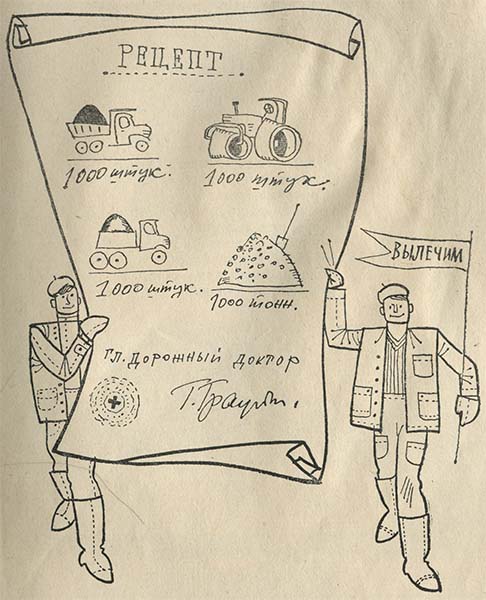 РЕЦЕПТ
1000 штук.
1000 штук.
1000 штук.
1000 тонн.
ВЫЛЕЧИМ
ГЛ. ДОРОЖНЫЙ ДОКТОР